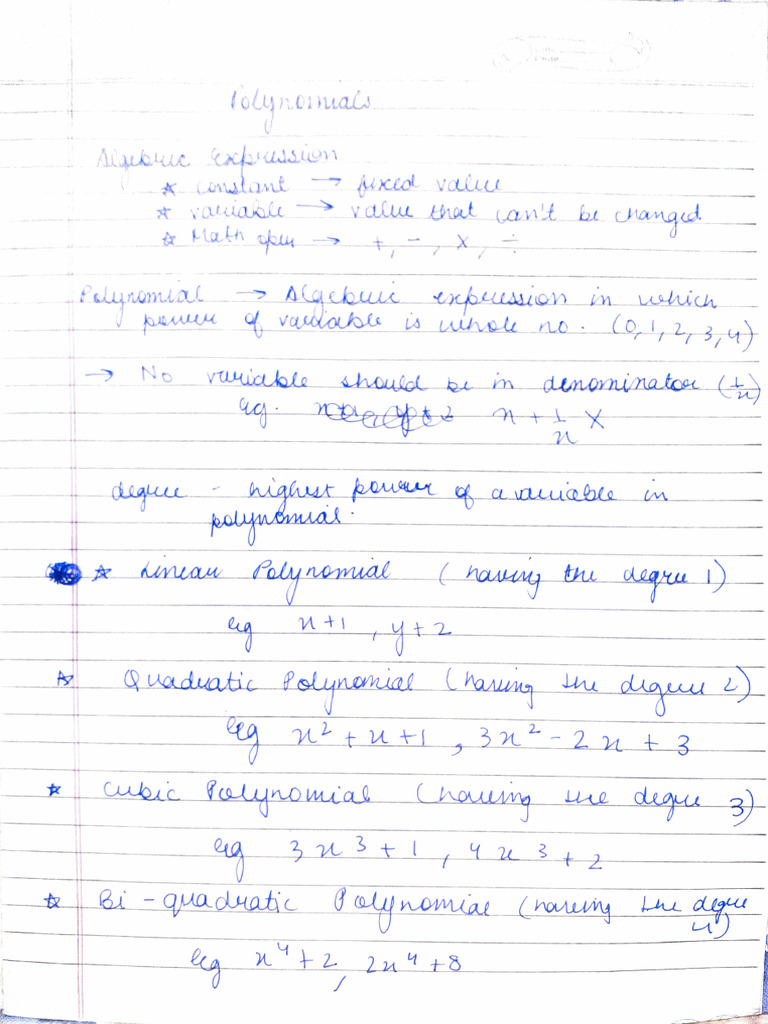 Polynomials
Algebric Expression
☆ constant → fixed value
☆ variable → value that can't be changed
☆ Math oper → +, -, ×, ÷
Polynomial → Algebric expression in which
power of variable is whole no. (0, 1, 2, 3, 4)
→ No variable should be in denominator (1/x)
eg. x + 1/x X
degree - highest power of a variable in
polynomial.
☆ Linear Polynomial (having the degree 1)
eg x+1, y+2
☆ Quadratic Polynomial (having the degree 2)
eg x² + x + 1, 3x² - 2x + 3
☆ Cubic Polynomial (having the degree 3)
eg 3x³ + 1, 4x³ + 2
☆ Bi-quadratic Polynomial (having the degree
4)
eg x⁴ + 2, 2x⁴ + 8